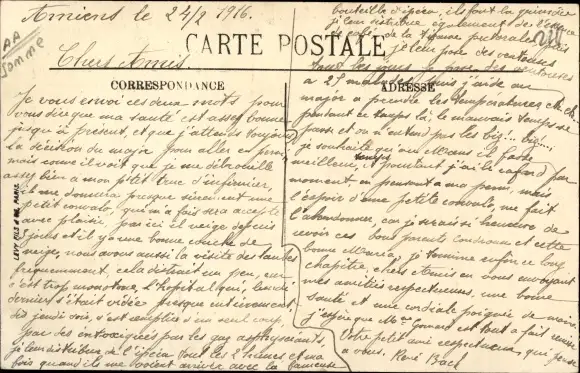 Amiens le 24/2 1916.
AA
Somme
CARTE POSTALE
Chers Amis
CORRESPONDANCE
ADRESSE
LEVY FILS & CIE, PARIS
Je vous envoi ces deux mots pour
vous dire que ma santé est assez bonne
jusqu'à présent, et que j'attends toujours
la décision du major pour aller en
mais comme il voit que je me débrouille
assez bien a mon p'tit truc d'infirmier,
il me donnera presque sûrement une
petite convalo, qui m'a fois sera accepté
avec plaisir, par ici il neige depuis
jours et il y a une bonne couche de
neige, nous avons aussi la visite des taubes
fréquemment, cela distrait un peu, car
c'est trop monotone, l'hopital qui, lundi
dernier s'était vidée presque entièrement,
dès jeudi soir, s'est remplie d'un seul coup
par des intoxiqués par les gaz asphyxiants,
je leur distribue de l'ipéca tout les 2 heures et ma
fois quand ils me voient arriver avec la fameuse
bouteille d'ipéca, ils font la grimace
je leur distribue également de
du café, de la tisane pectorale, puis
je leur pose des ventouses
tout les jours je pose des ventouses
a 25 malades, puis j'aide au
major a prendre les températures
pendant ce temps là, le mauvais temps se
passe et on n'entend pas les big!.. big!..
je souhaite qu'au Mans il fasse
meilleur temps, et pourtant j'ai le cafard par
moment, en pensant a ma mais
l'espoir d'une petite convalo me fait
l'abandonner, car je serais heureux de
revoir ces bons parents et cette
bonne Maria, je termine enfin ce long
chapitre, chers Amis en vous envoyant
mes amitiés respectueuses, une bonne
santé et une cordiale poignée de main,
j'espère que Mme est tout a fait remise
Votre petit ami respectueux, qui pense
a vous. René Back